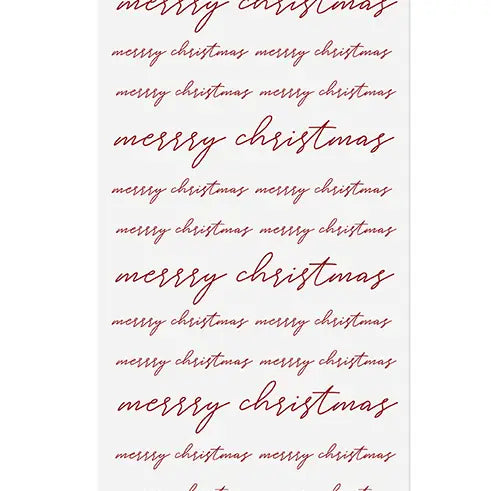 merrry christmas
merrry christmas merrry christmas
merrry christmas merrry christmas
merrry christmas
merrry christmas merrry christmas
merrry christmas merrry christmas
merrry christmas
merrry christmas merrry christmas
merrry christmas merrry christmas
merrry christmas
merrry christmas merrry christmas